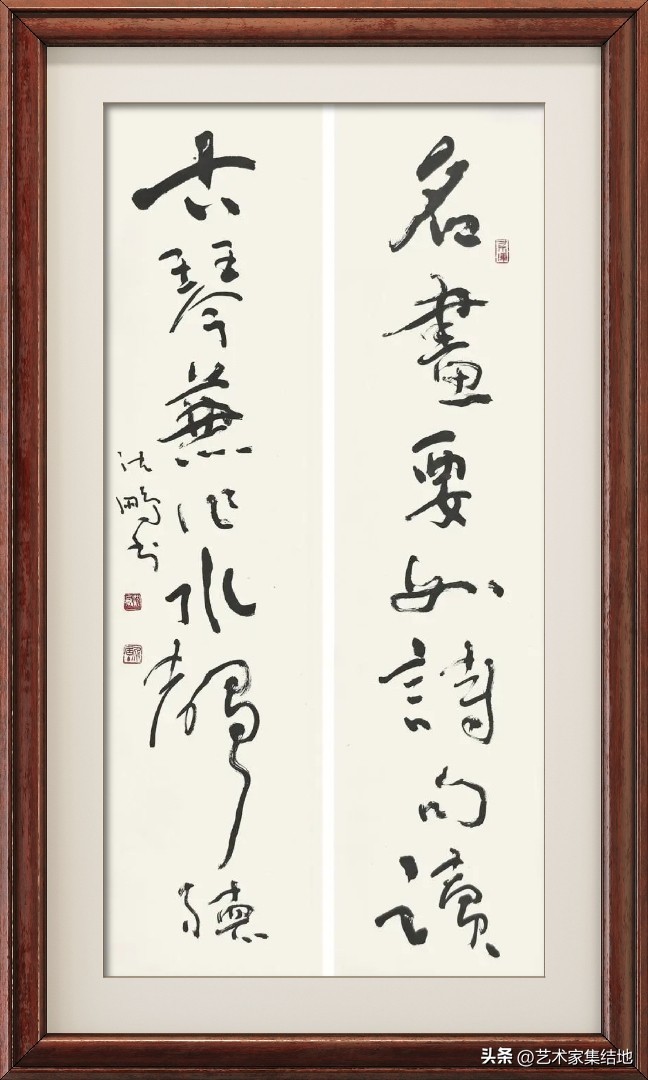 名畫要如詩句讀
古琴兼作水聲聽
沈鵬书
头条 @艺术家集结地